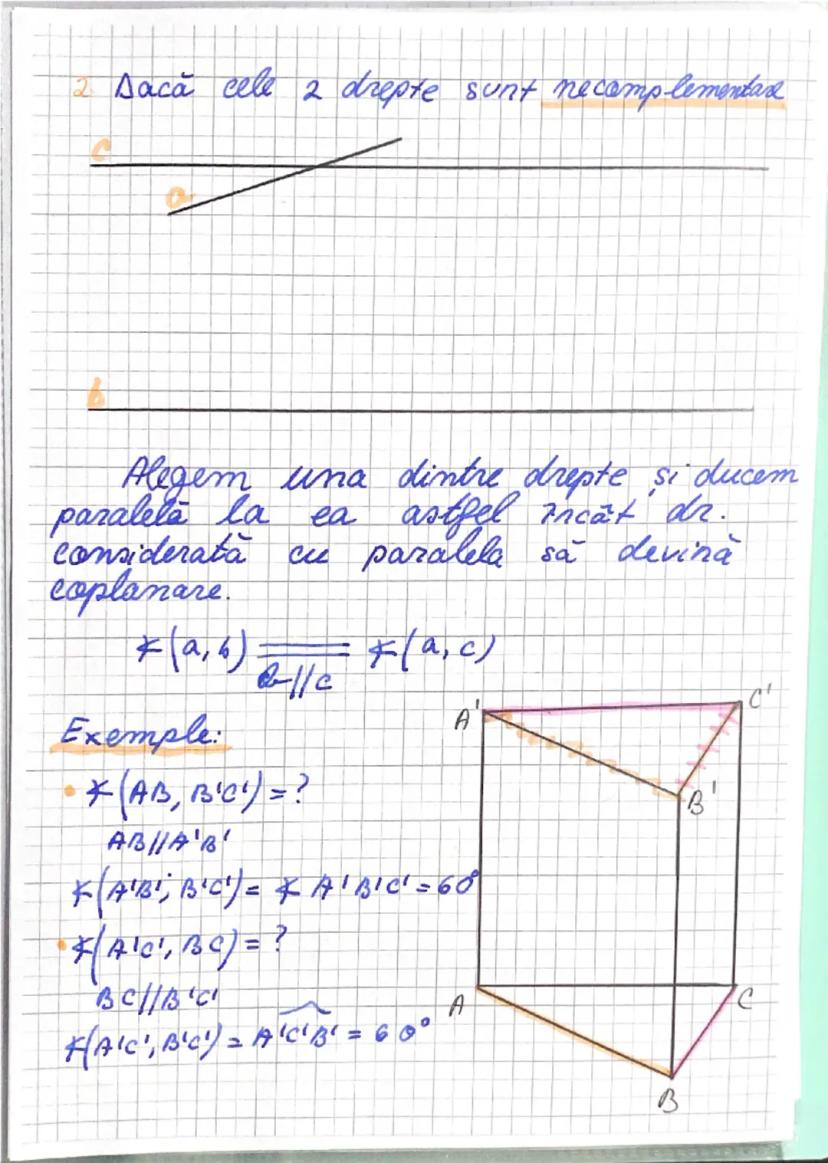 2. Dacă cele 2 drepte sunt necomplementare
c
a
b
Alegem una dintre drepte și ducem
paralelă la ea astfel încât dr.
considerată cu paralela să devină
coplanare.
∢(a,b) ═══ ∢(a,c)
b//c
Exemple:
• ∢(AB, B'C') = ?
AB//A'B'
∢(A'B'; B'C') = ∢ A'B'C' = 60°
• ∢(A'C', BC) = ?
BC//B'C'
∢(A'C', B'C') = A'C'B' = 60°
A'
C'
B'
A
C
B